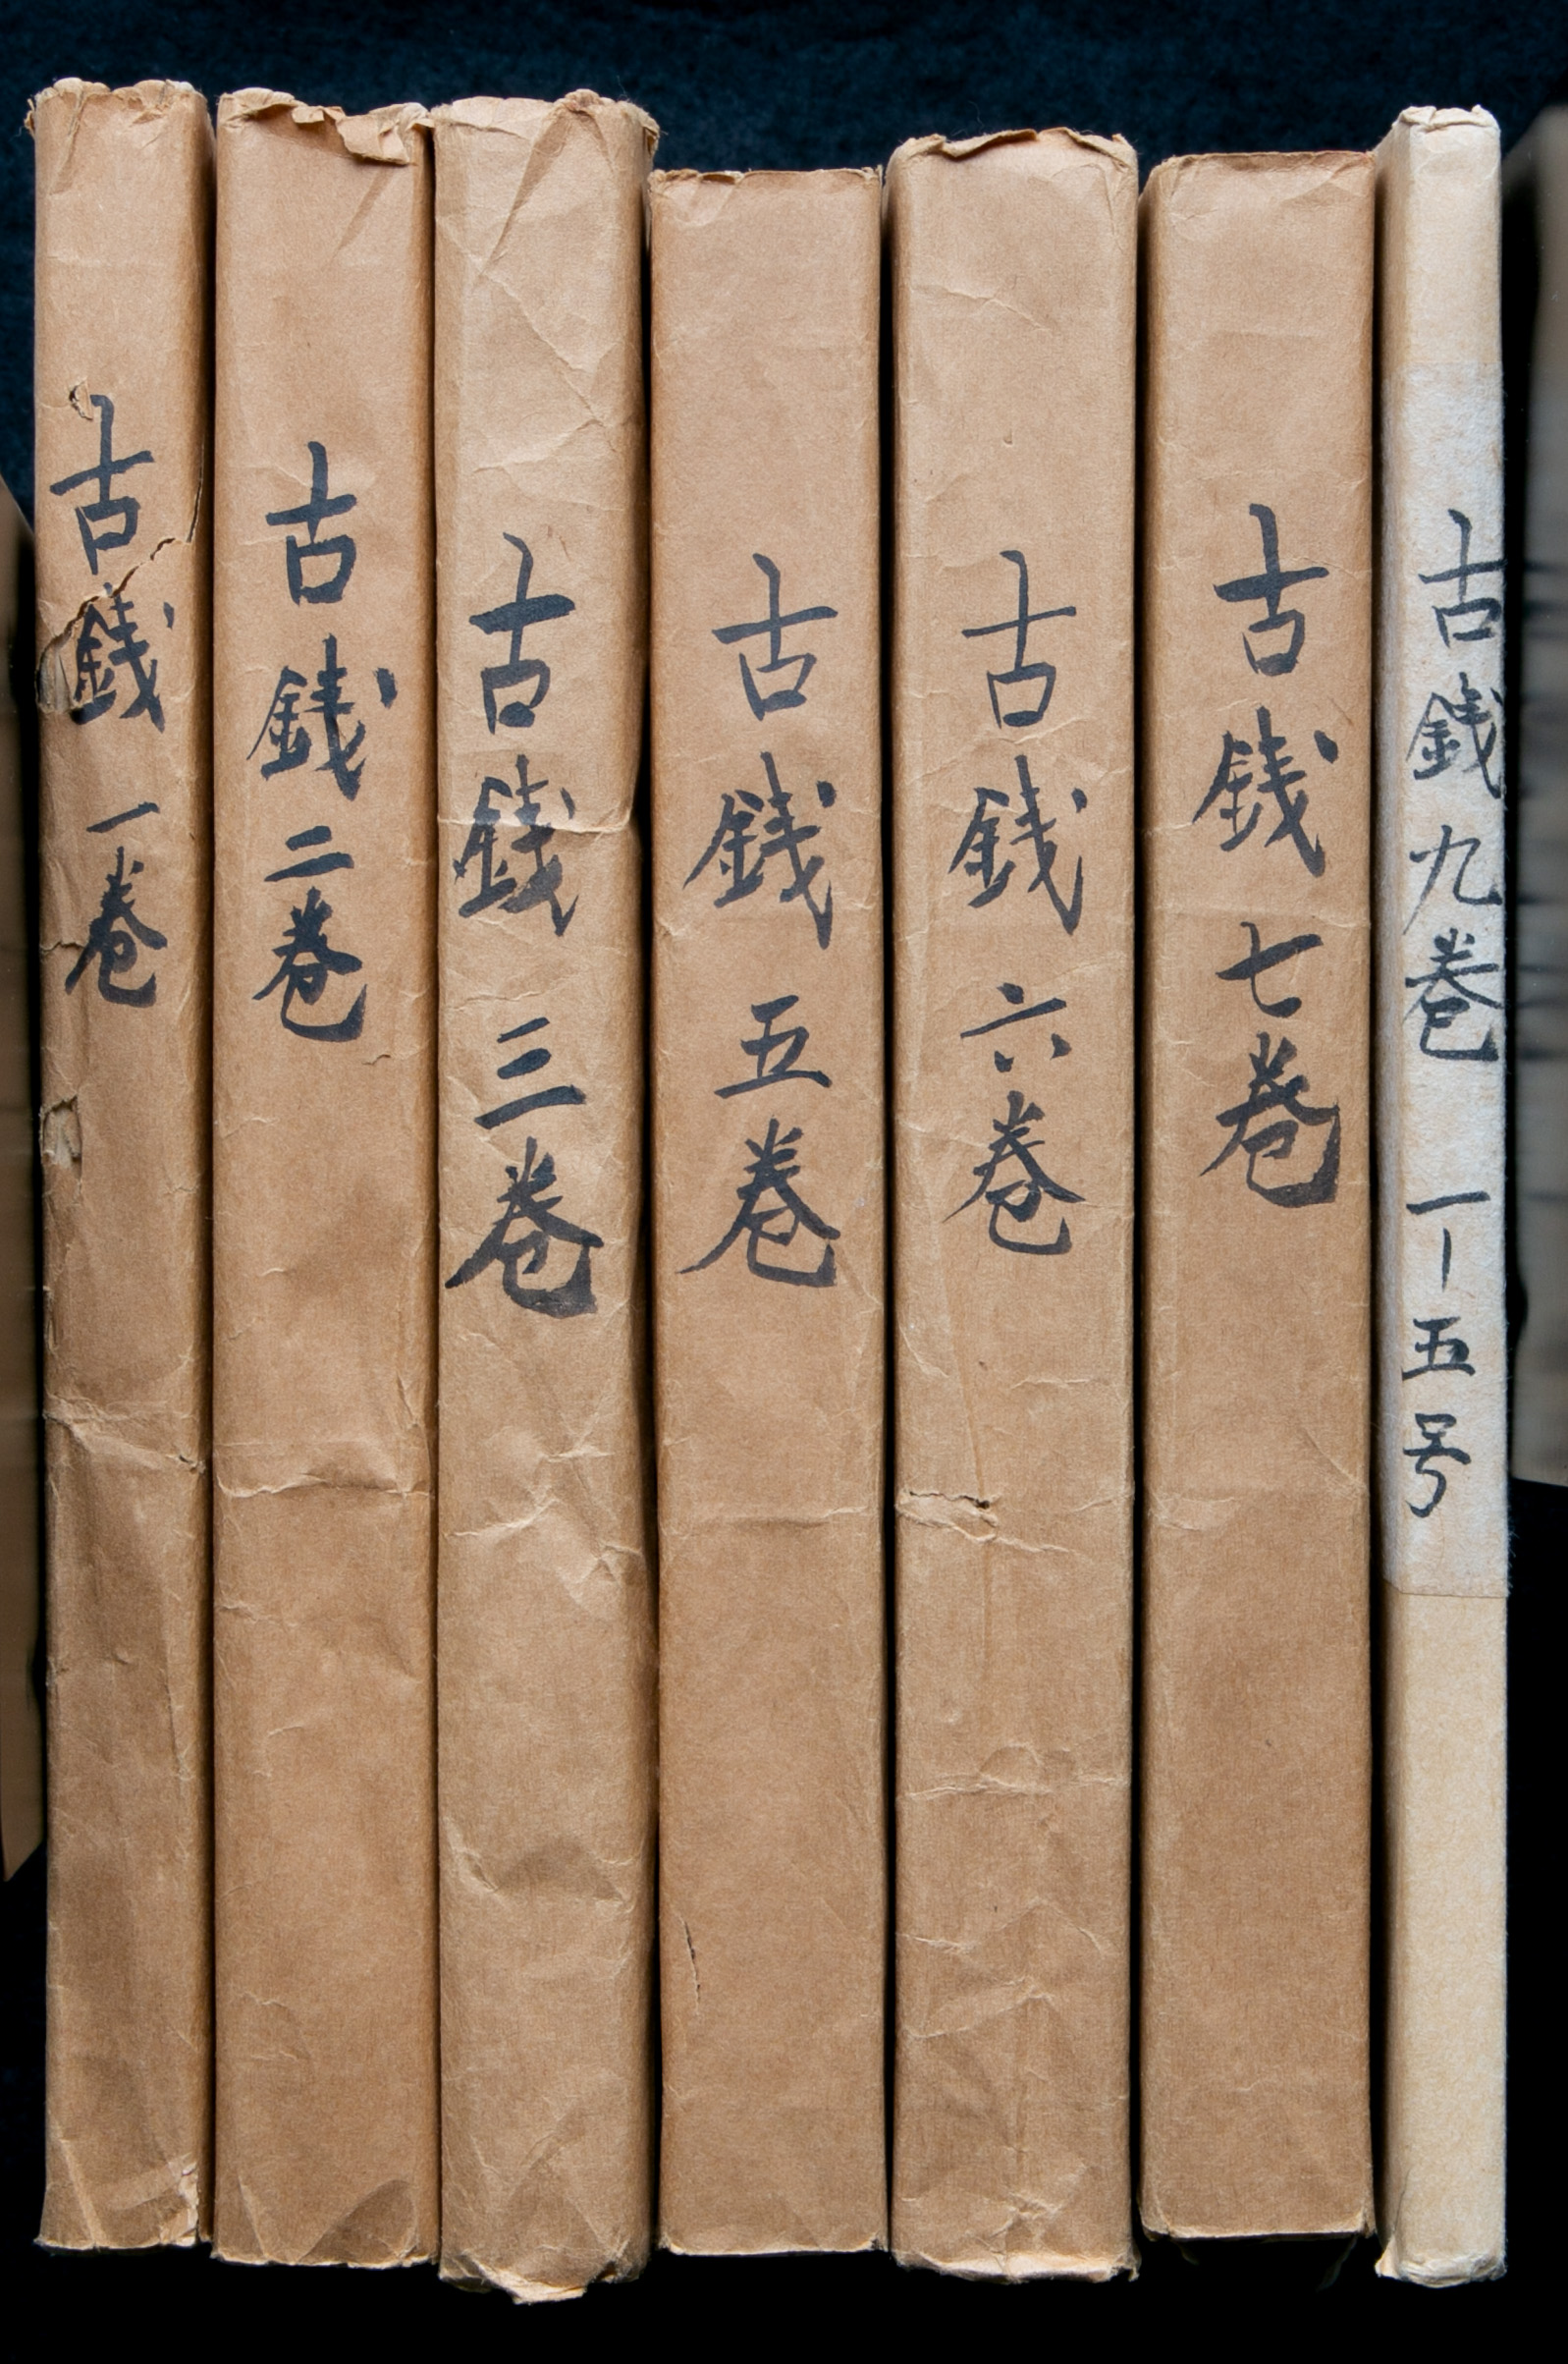 古銭 一巻
古銭 二巻
古銭 三巻
古銭 五巻
古銭 六巻
古銭 七巻
古銭 九巻 一―五号